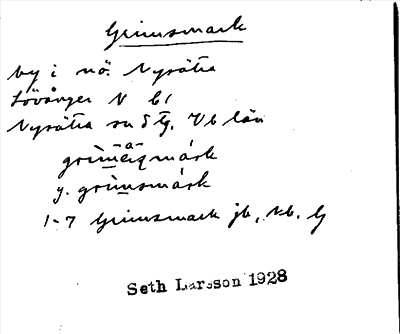 Grimsmark
by i nö. Nysätra
Lövånger N b1
Nysätra sn Vb län
grimsmark
y. grimsmark
1-7 Grimsmark jb, kb. G
Seth Larsson 1928